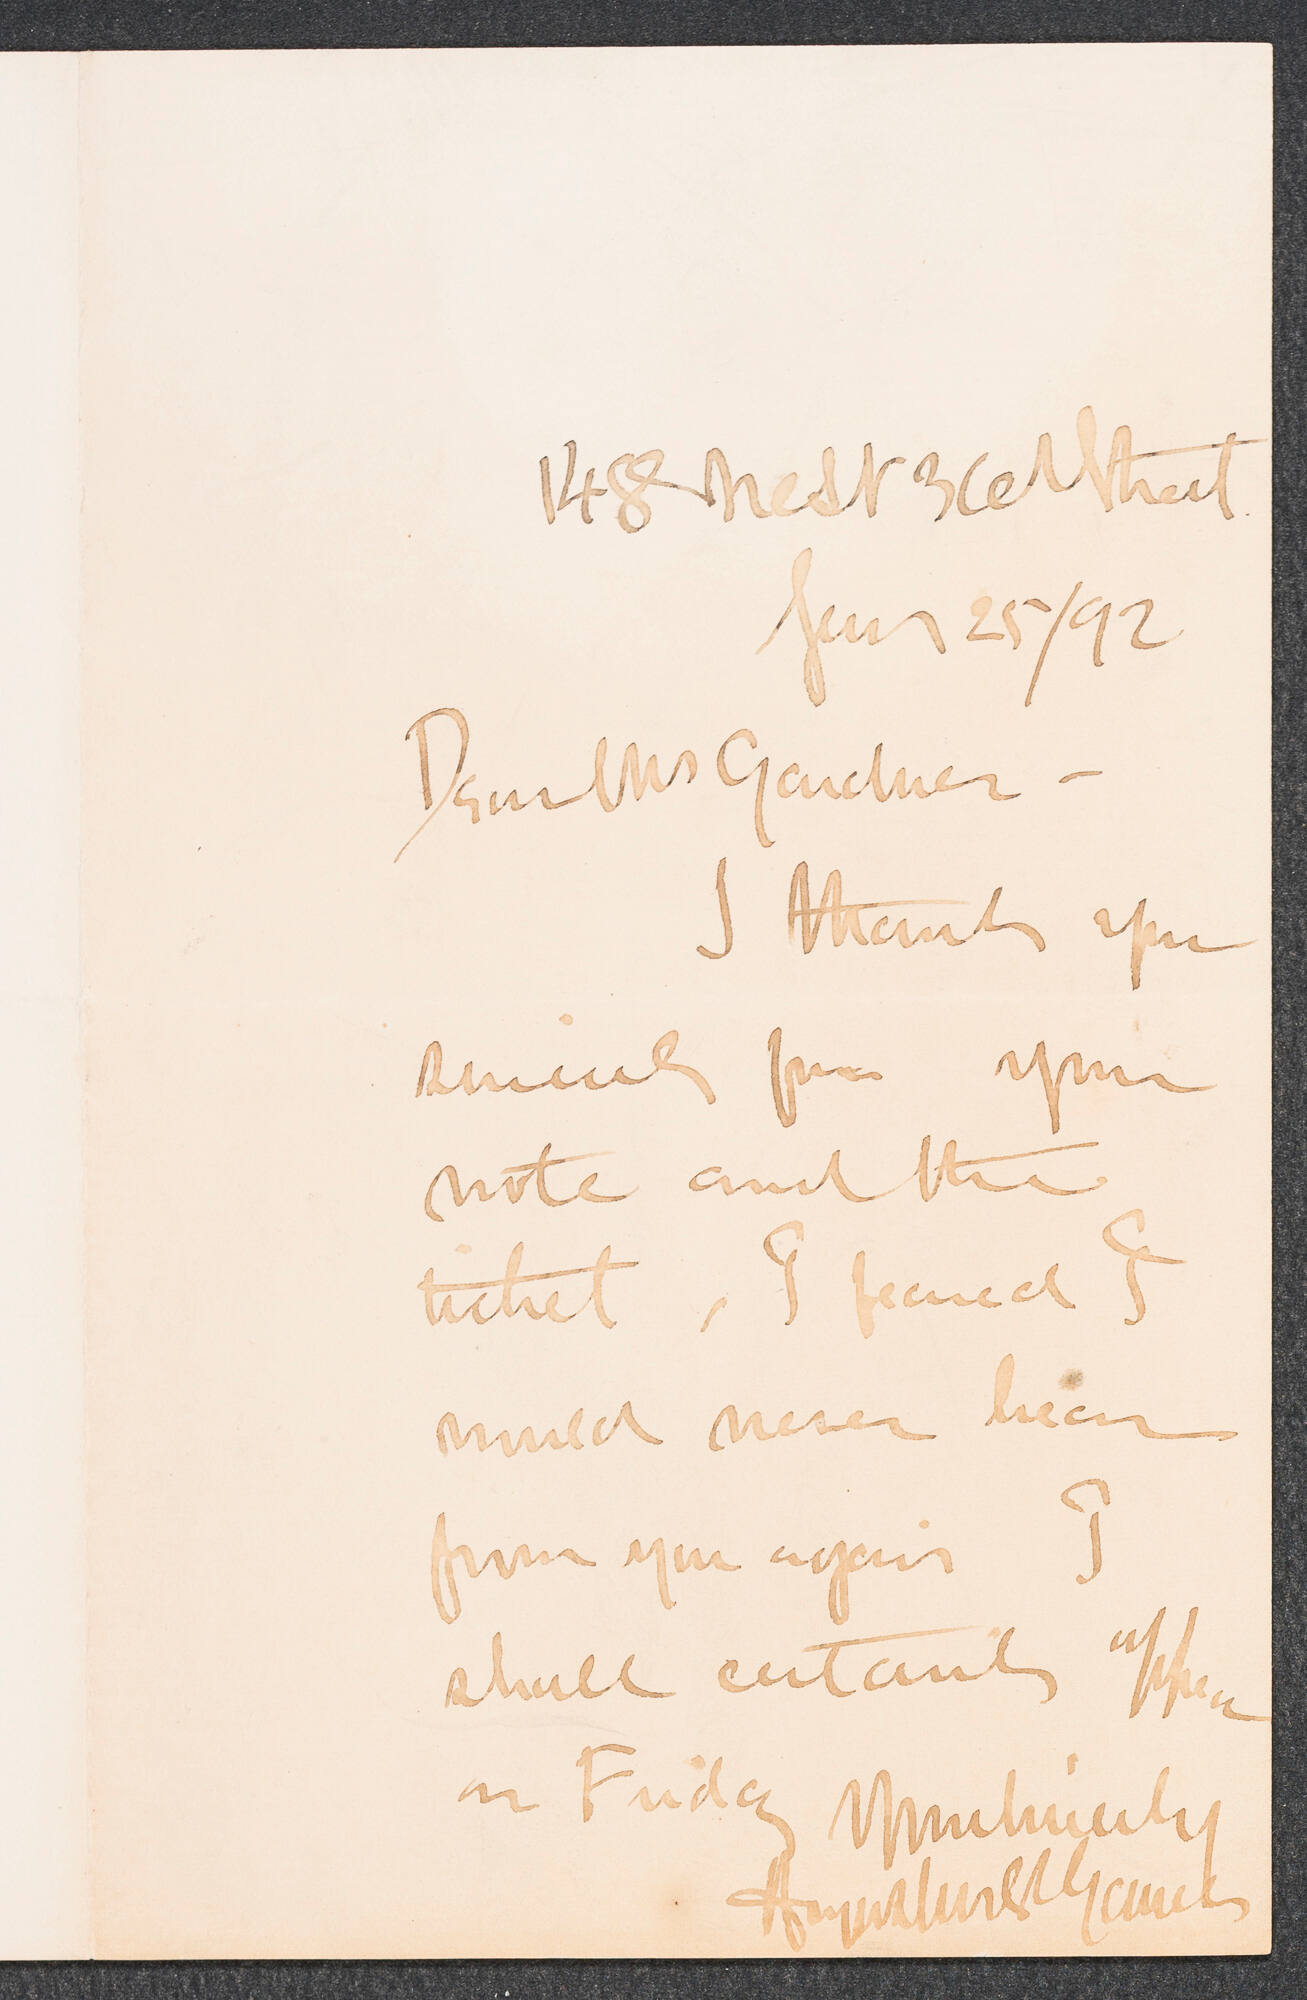 148 West 36th Street.
Jany 25/92
Dear Mrs Gardner –
I thank you
sincerely for your
note and the
ticket, I feared I
would never hear
from you again I
shall certainly appear
on Friday Yours sincerely
Augustus St Gaudens